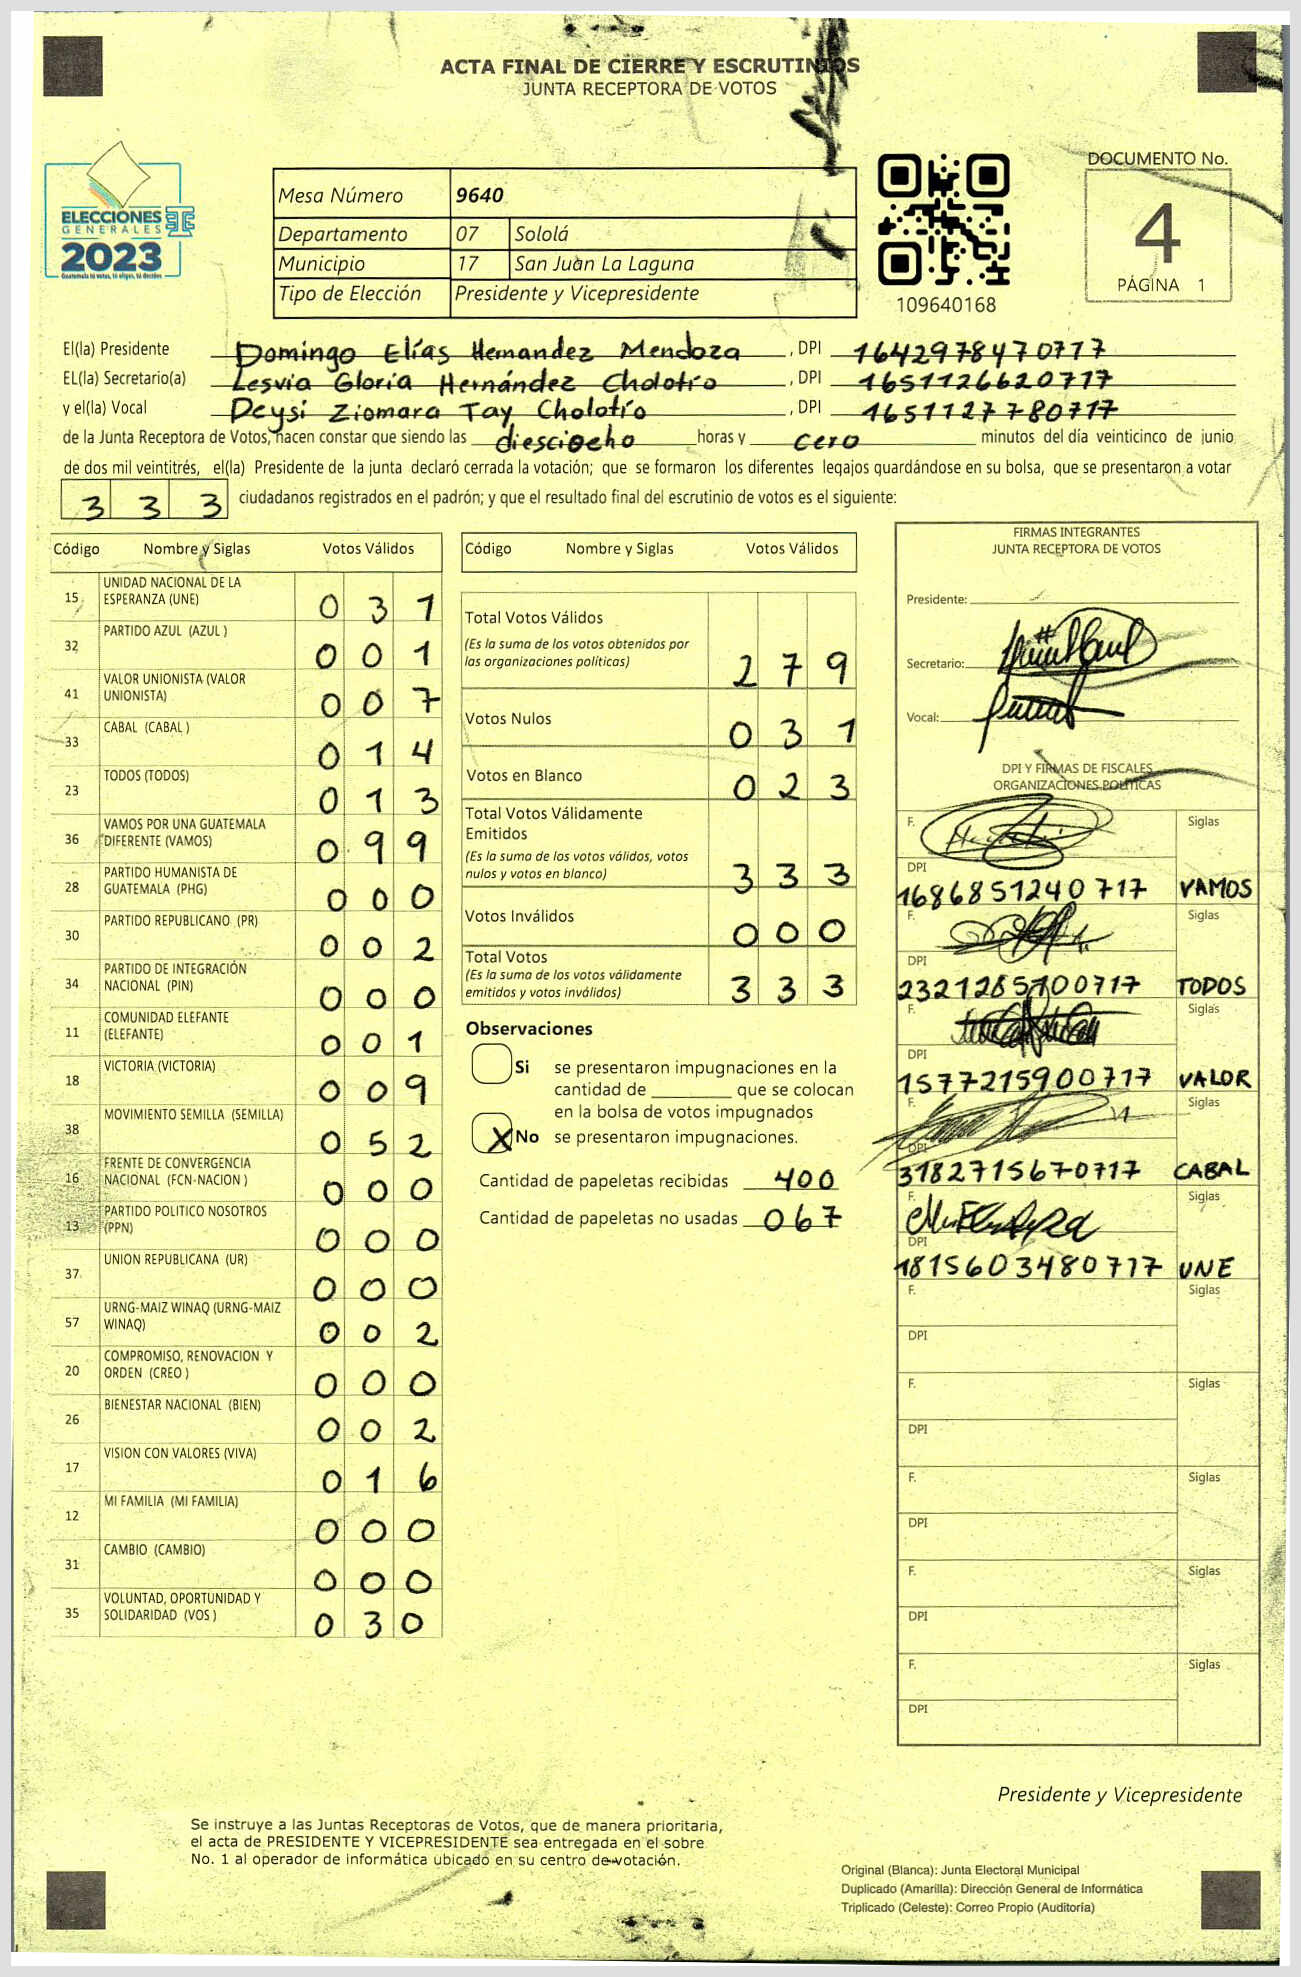 ACTA FINAL DE CIERRE Y ESCRUTINIOS
JUNTA RECEPTORA DE VOTOS
ELECCIONES
GENERALES
2023
Guatemala tú votas, tú eliges, tú decides
Mesa Número 9640
Departamento 07 Sololá
Municipio 17 San Juan La Laguna
Tipo de Elección Presidente y Vicepresidente
109640168
DOCUMENTO No.
4
PÁGINA 1
El(la) Presidente Domingo Elías Hernandez Mendoza , DPI 1642978470717
EL(la) Secretario(a) Lesvia Gloria Hernández Cholotío , DPI 1651126620717
y el(la) Vocal Deysi Ziomara Tay Cholotío , DPI 1651127780717
de la Junta Receptora de Votos, hacen constar que siendo las diesciocho horas y cero minutos del día veinticinco de junio
de dos mil veintitrés, el(la) Presidente de la junta declaró cerrada la votación; que se formaron los diferentes legajos guardándose en su bolsa, que se presentaron a votar
333 ciudadanos registrados en el padrón; y que el resultado final del escrutinio de votos es el siguiente:
Código Nombre y Siglas Votos Válidos
15 UNIDAD NACIONAL DE LA ESPERANZA (UNE) 031
32 PARTIDO AZUL (AZUL ) 001
41 VALOR UNIONISTA (VALOR UNIONISTA) 007
33 CABAL (CABAL ) 014
23 TODOS (TODOS) 013
36 VAMOS POR UNA GUATEMALA DIFERENTE (VAMOS) 099
28 PARTIDO HUMANISTA DE GUATEMALA (PHG) 000
30 PARTIDO REPUBLICANO (PR) 002
34 PARTIDO DE INTEGRACIÓN NACIONAL (PIN) 000
11 COMUNIDAD ELEFANTE (ELEFANTE) 001
18 VICTORIA (VICTORIA) 009
38 MOVIMIENTO SEMILLA (SEMILLA) 052
16 FRENTE DE CONVERGENCIA NACIONAL (FCN-NACION ) 000
13 PARTIDO POLITICO NOSOTROS (PPN) 000
37 UNION REPUBLICANA (UR) 000
57 URNG-MAIZ WINAQ (URNG-MAIZ WINAQ) 002
20 COMPROMISO, RENOVACION Y ORDEN (CREO ) 000
26 BIENESTAR NACIONAL (BIEN) 002
17 VISION CON VALORES (VIVA) 016
12 MI FAMILIA (MI FAMILIA) 000
31 CAMBIO (CAMBIO) 000
35 VOLUNTAD, OPORTUNIDAD Y SOLIDARIDAD (VOS ) 030
Código Nombre y Siglas Votos Válidos
Total Votos Válidos 279
(Es la suma de los votos obtenidos por
las organizaciones políticas)
Votos Nulos 031
Votos en Blanco 023
Total Votos Válidamente
Emitidos
(Es la suma de los votos válidos, votos
nulos y votos en blanco) 333
Votos Inválidos 000
Total Votos
(Es la suma de los votos válidamente
emitidos y votos inválidos) 333
Observaciones
Si se presentaron impugnaciones en la
cantidad de ________ que se colocan
en la bolsa de votos impugnados
X No se presentaron impugnaciones.
Cantidad de papeletas recibidas 400
Cantidad de papeletas no usadas 067
FIRMAS INTEGRANTES
JUNTA RECEPTORA DE VOTOS
Presidente:
Secretario:
Vocal:
DPI Y FIRMAS DE FISCALES
ORGANIZACIONES POLÍTICAS
F. Siglas
DPI
1686851240717 VAMOS
F. Siglas
DPI
2321285100717 TODOS
F. Siglas
DPI
1577215900717 VALOR
F. Siglas
DPI
3182715670717 CABAL
F. Siglas
DPI
1815603480717 UNE
F. Siglas
DPI
F. Siglas
DPI
F. Siglas
DPI
F. Siglas
DPI
F. Siglas
DPI
Presidente y Vicepresidente
Se instruye a las Juntas Receptoras de Votos, que de manera prioritaria,
el acta de PRESIDENTE Y VICEPRESIDENTE sea entregada en el sobre
No. 1 al operador de informática ubicado en su centro de votación.
Original (Blanca): Junta Electoral Municipal
Duplicado (Amarilla): Dirección General de Informática
Triplicado (Celeste): Correo Propio (Auditoría)